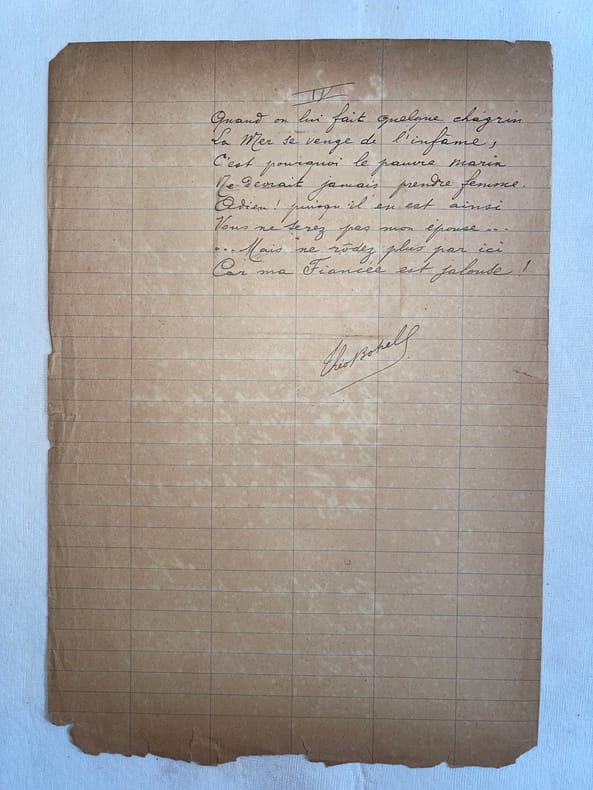 IV
Quand on lui fait quelque chagrin
La Mer se venge de l'infâme,
C'est pourquoi le pauvre marin
Ne devrait jamais prendre femme.
Adieu! puisqu'il en est ainsi
Vous ne serez pas mon épouse...
... Mais ne rôdez plus par ici
Car ma Fiancée est jalouse!
ThéoBotrel